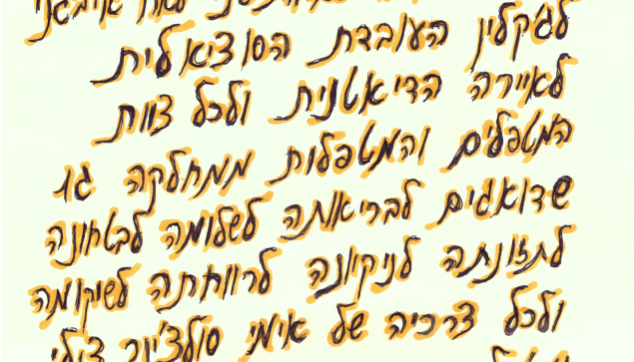 לאח איבגני
לג'קלין העובדת הסוציאלית
לאיירה הדיאטנית ולכל צוות
המטפלים והמטפלות ממחלקה ג1
שדואגים לבריאותה לשלומה לבטחונה
לתזונתה לניקיונה לרווחתה לשיקומה
ולכל צרכיה של אימי